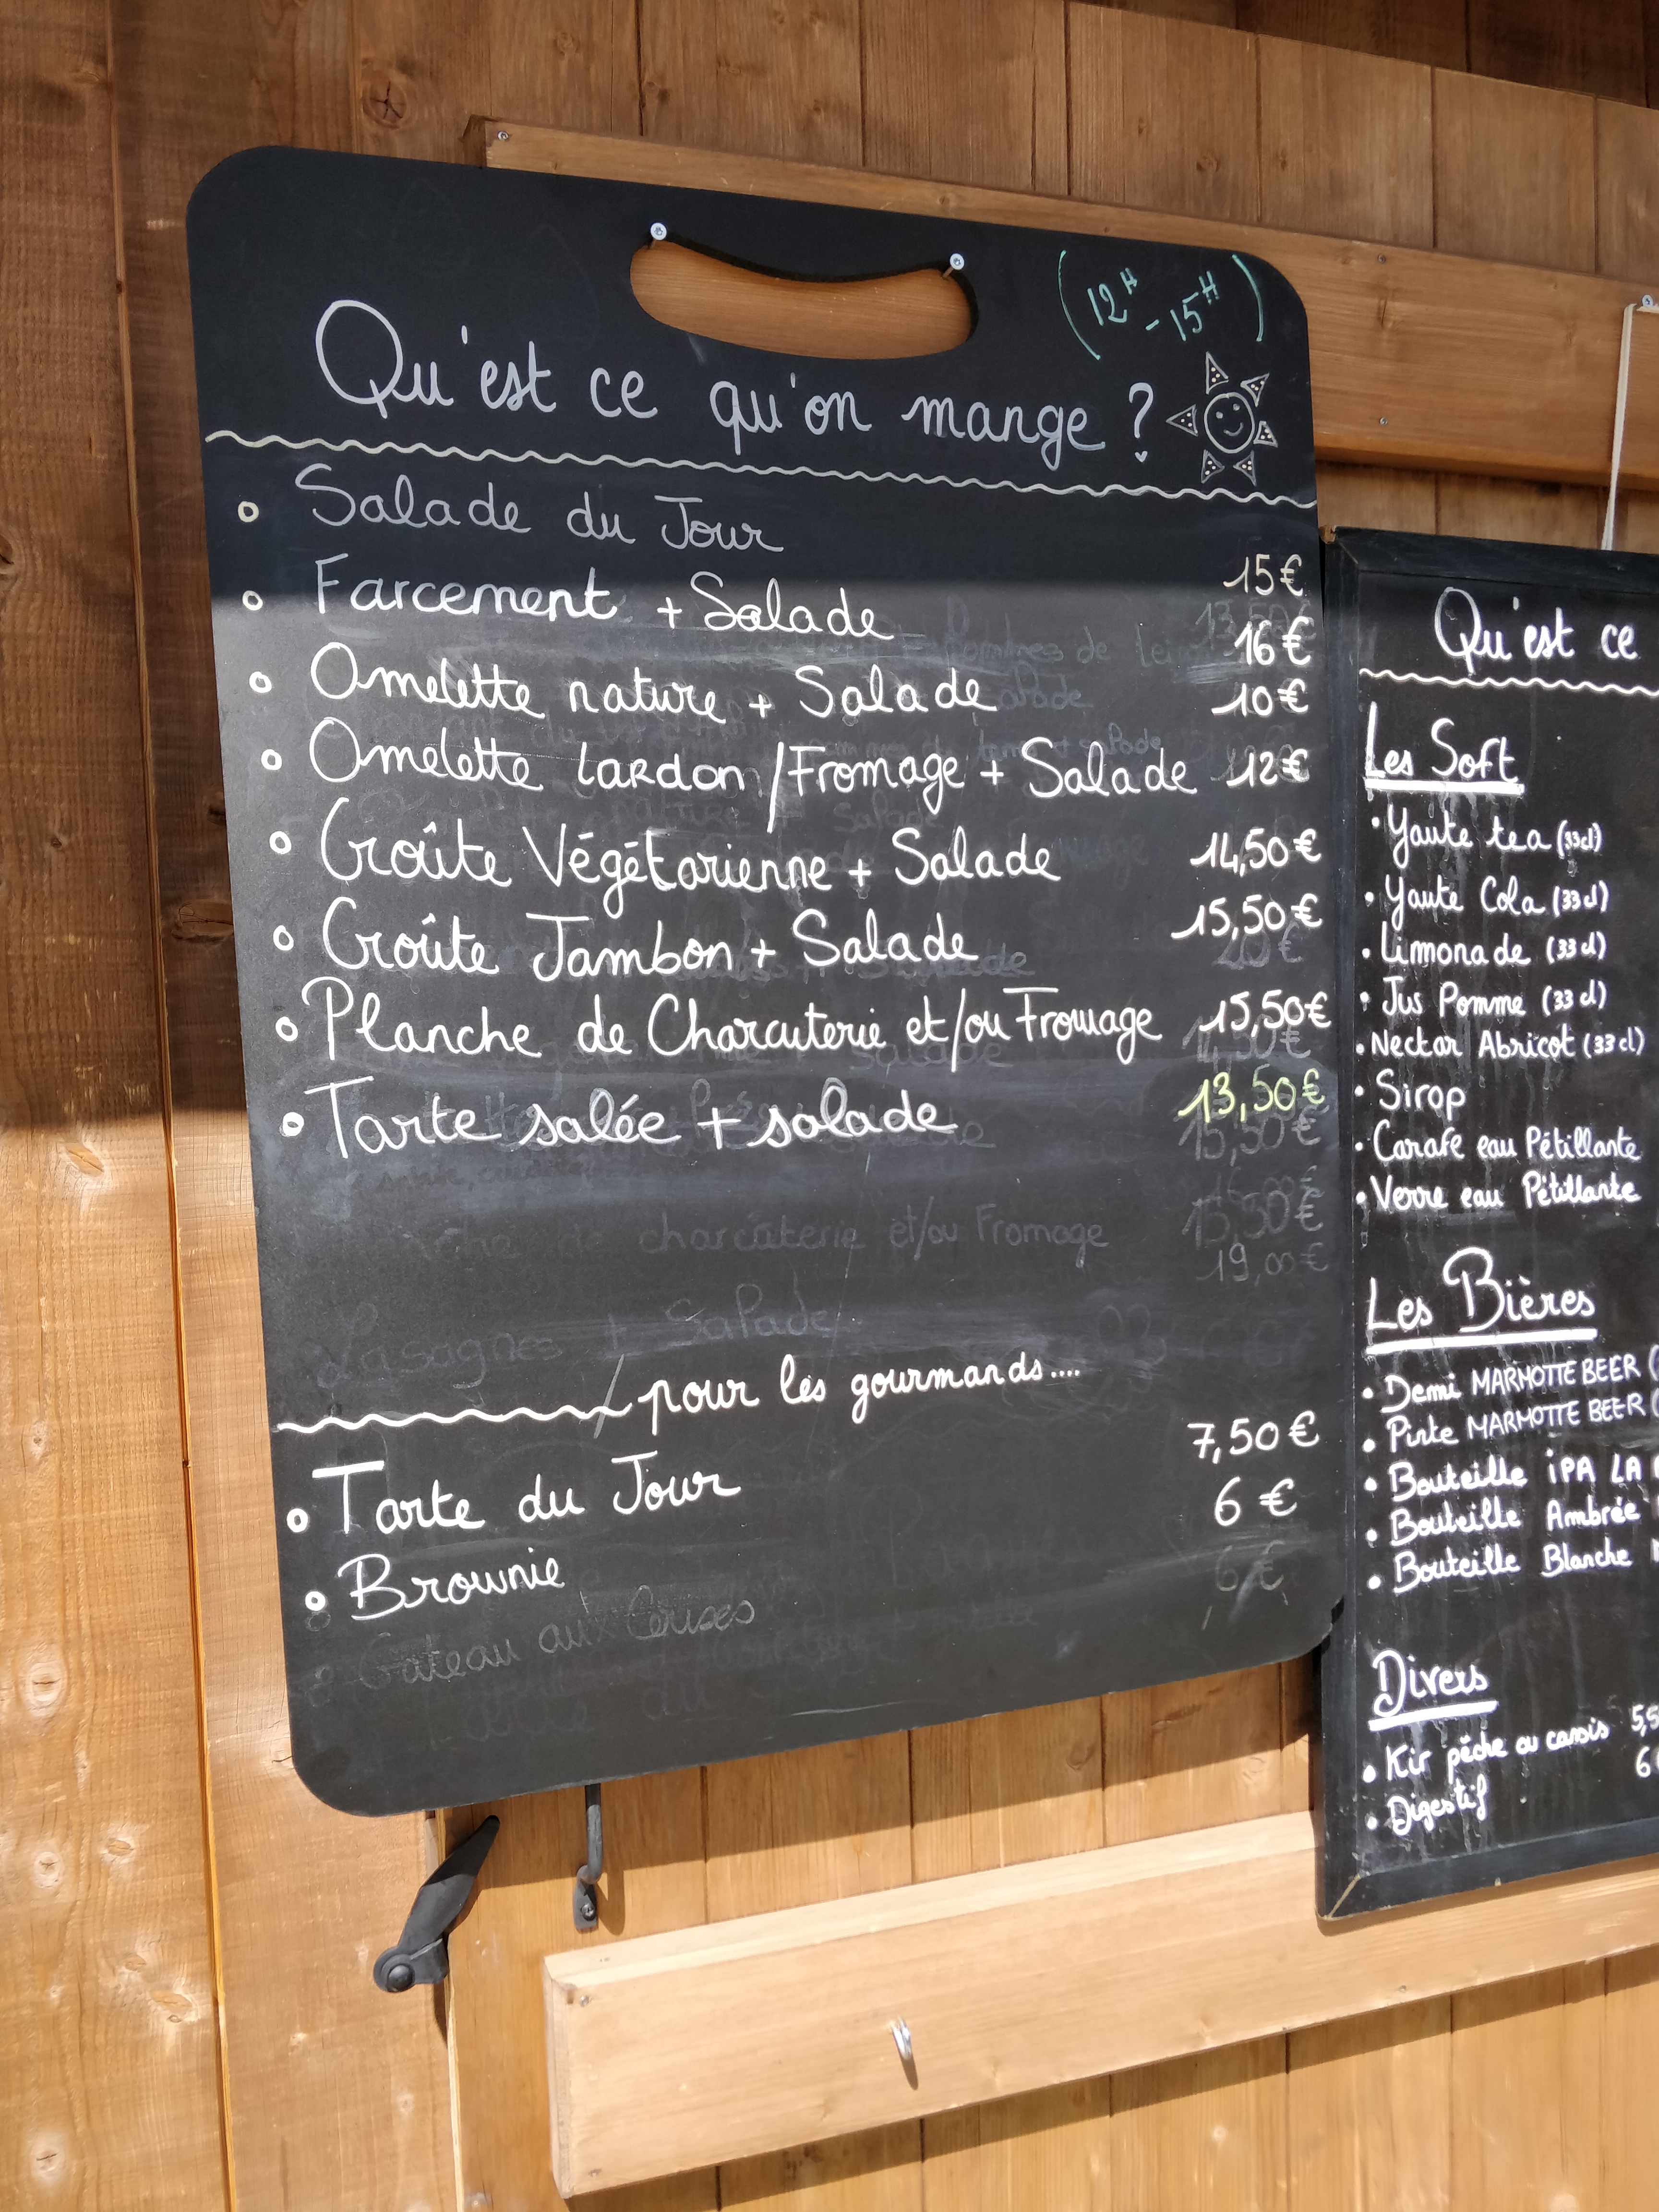 (12H - 15H)
Qu'est ce qu'on mange ?
Salade du Jour 15€
Farcement + Salade 16€
Omelette nature + Salade 10€
Omelette lardon/Fromage + Salade 12€
Croûte Végétarienne + Salade 14,50€
Croûte Jambon + Salade 15,50€
Planche de Charcuterie et/ou Fromage 15,50€
Tarte salée + salade 13,50€
charcuterie et/ou Fromage 15,50€
19,00€
Lasagnes + Salade
pour les gourmands....
Tarte du Jour 7,50€
Brownie 6€
6€
Gateau aux Cerises
Qu'est ce
Les Soft
Yaute tea (33cl)
Yaute Cola (33cl)
Limonade (33cl)
Jus Pomme (33cl)
Nectar Abricot (33cl)
Sirop
Carafe eau Pétillante
Verre eau Pétillante
Les Bières
Demi MARMOTTE BEER (
Pinte MARMOTTE BEER (
Bouteille iPA LA
Bouteille Ambrée
Bouteille Blanche
Divers
Kir pêche ou cassis 5,5
Digestif 6